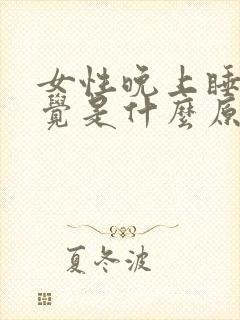 女性晚上睡
覺是什麼原
夏冬波